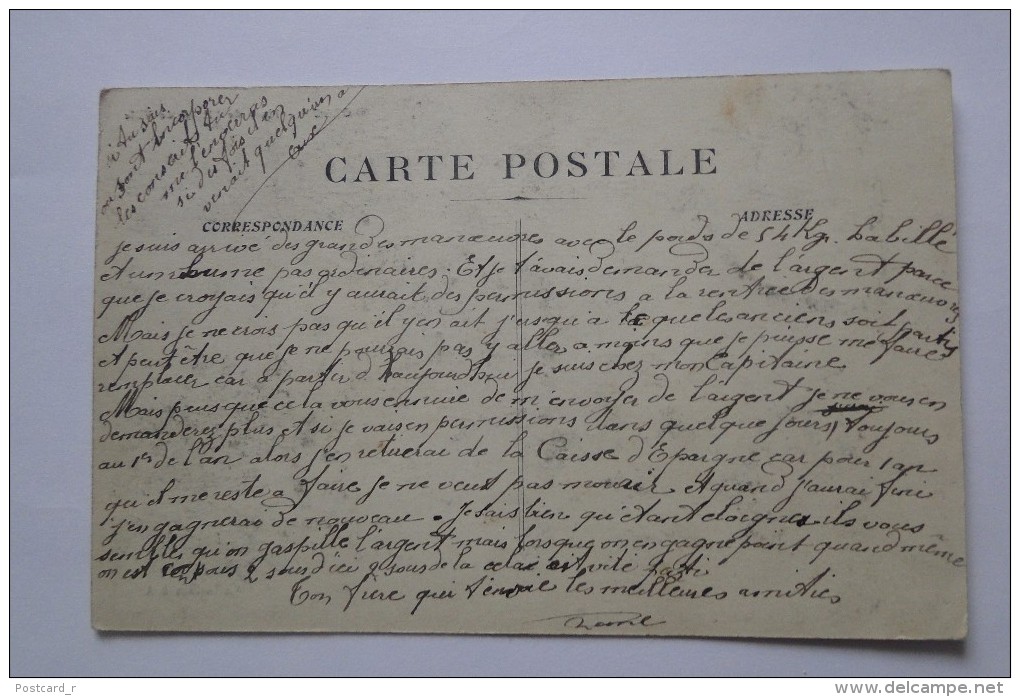 si tu sais
on doit incorporer
les conscrits tu
me l'enverras
si des fois il en
venait quelqu'un a
CARTE POSTALE
CORRESPONDANCE
ADRESSE
je suis arrivé des grandes manœuvres avec le poids de 54 kg. habillé
et un rhume pas ordinaires. Et je t'avais demander de l'argent parce
que je croyais qu'il y aurait des permissions a la rentrée des manœuvres
Mais je ne crois pas qu'il y en ait jusqu'a ce que les anciens soit partis
et peut être que je ne pourrais pas y aller a moins que je puisse me faire
remplacer car a partir d'haujourd'hui je suis chez mon Capitaine
Mais puis que cela vous ennuie de m'envoyer de l'argent je ne vous en
demanderez plus et si je vais en permissions dans quelque jours, toujours
au 1er de l'an alors j'en retirerai de la Caisse d'Epargne car pour 1 an
qu'il me reste a faire je ne veut pas mourir et quand j'aurai fini
j'en gagnerai de nouveau. Je sais bien qu'étant eloignes ils vous
sembles qu'on gaspille l'argent mais lorsque on en gagne point quand même
on est 2 sous d'ici 2 sous de la cela est vite parti
Ton frère qui t'envoie les meilleures amitiés
Postcard_r
www.delcampe.net